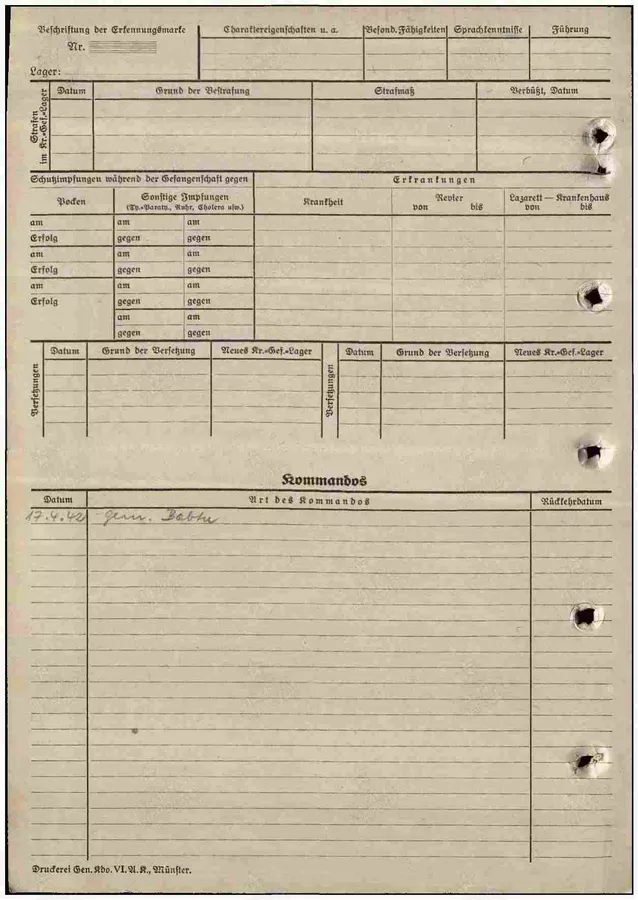 Beschriftung der Erkennungsmarke
Nr.
Lager:
Charaktereigenschaften u. a.
Besond. Fähigkeiten
Sprachkenntnisse
Führung
Strafen
im Kr.-Gef.-Lager
Datum
Grund der Bestrafung
Strafmaß
Verbüßt, Datum
Schutzimpfungen während der Gefangenschaft gegen
Erkrankungen
Pocken
Sonstige Impfungen
(Ty.-Paraty., Ruhr, Cholera usw.)
Krankheit
Revier
von bis
Lazarett — Krankenhaus
von bis
am am am
Erfolg gegen gegen
am am am
Erfolg gegen gegen
am am am
Erfolg gegen gegen
am am
gegen gegen
Versetzungen
Datum
Grund der Versetzung
Neues Kr.-Gef.-Lager
Versetzungen
Datum
Grund der Versetzung
Neues Kr.-Gef.-Lager
Kommandos
Datum
Art des Kommandos
Rückkehrdatum
17.4.42 gem.
Druckerei Gen. Kdo. VI. A. K., Münster.